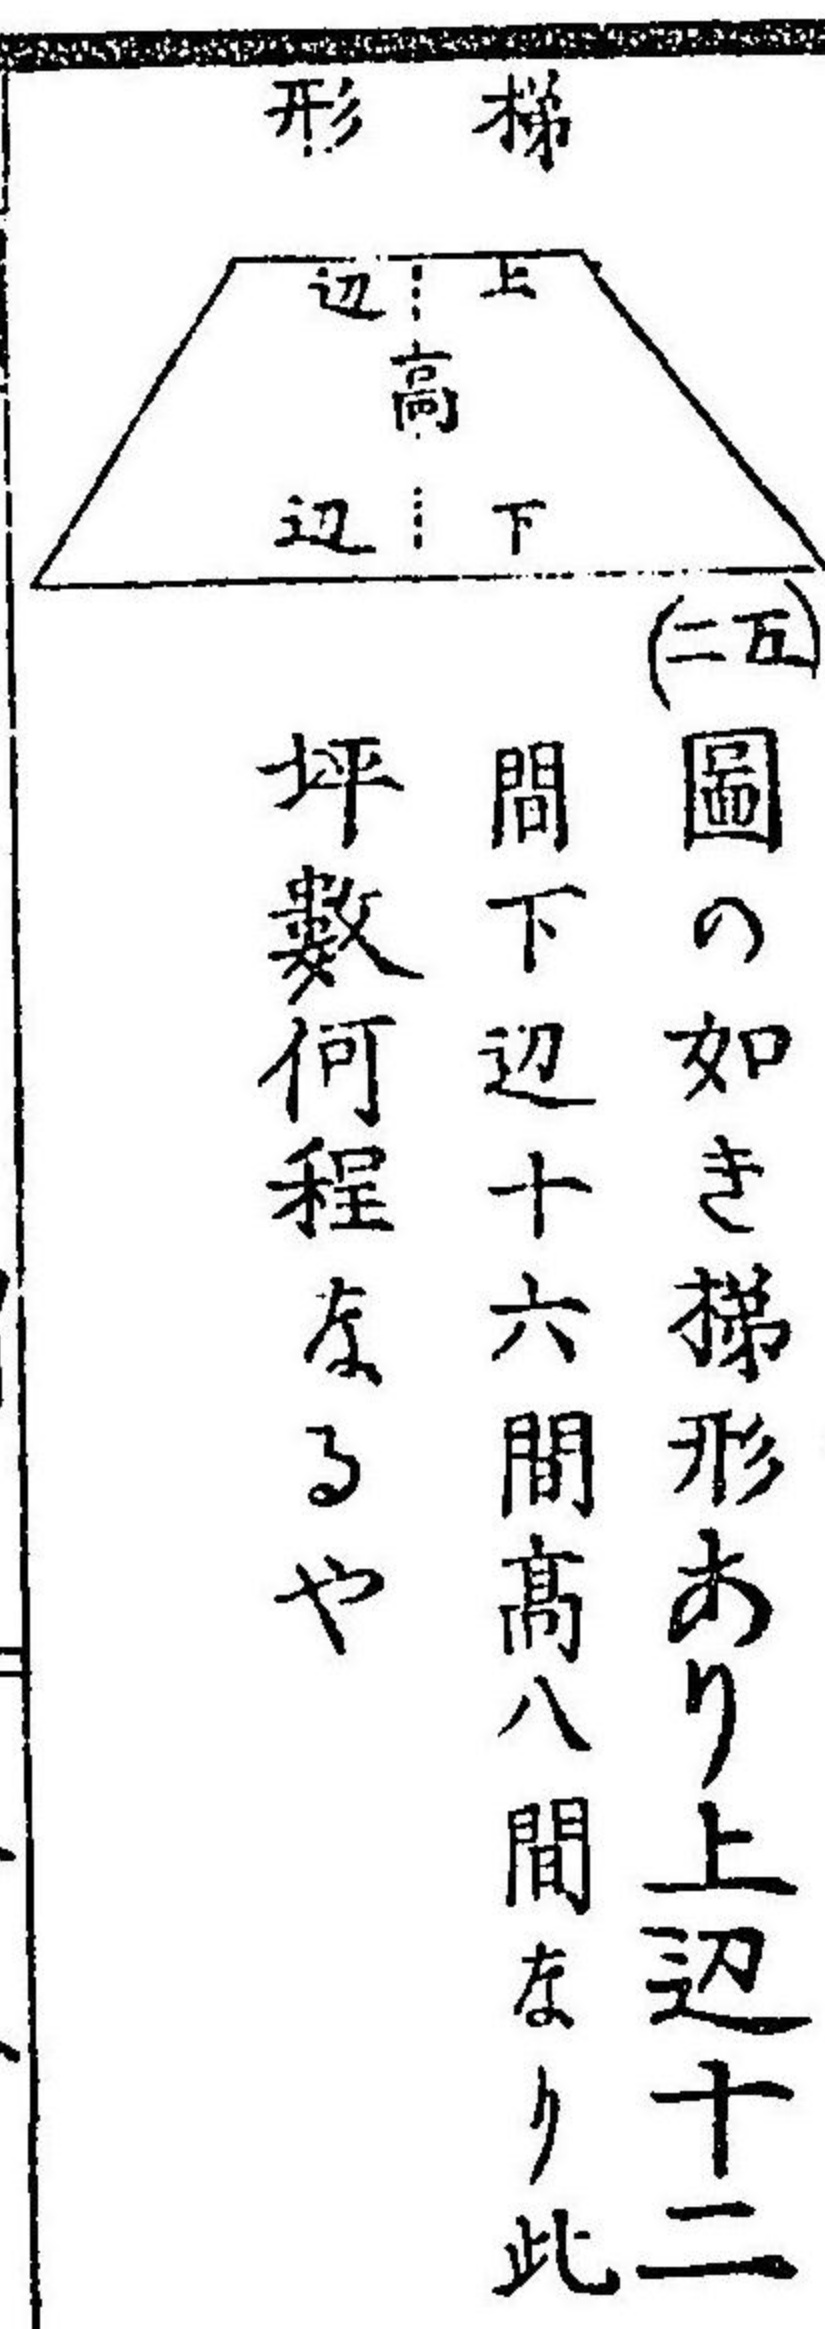 梯形
上辺
高
下辺
(五二)
圖の如き梯形あり上辺十二
間下辺十六間高八間なり此
坪數何程なるや